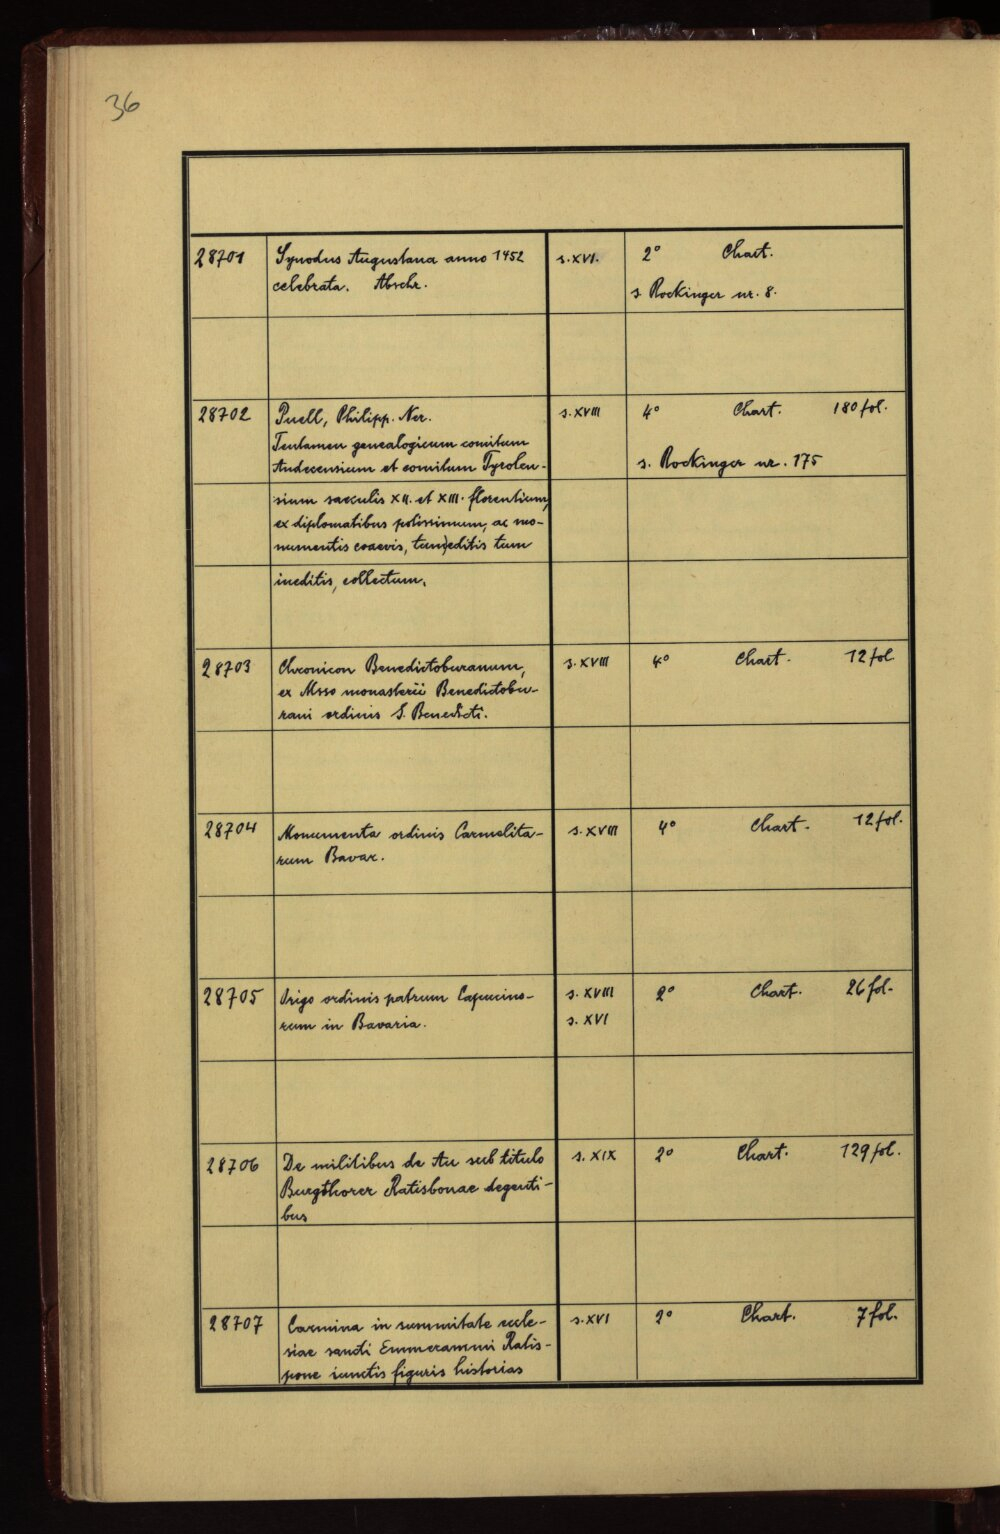 36
28701 Synodus Augustana anno 1452 s. XVI. 2° Chart.
celebrata. Abschr. s. Rockinger nr. 8.
28702 Puell, Philipp. Ner. s. XVIII 4° Chart. 180 fol.
Tentamen genealogicum comitum
Andecensium et comitum Tyrolen- s. Rockinger nr. 175
sium saeculis XII. et XIII. florentium,
ex diplomatibus potissimum, ac mo-
numentis coaevis, tum editis tum
ineditis, collectum.
28703 Chronicon Benedictoburanum, s. XVIII 4° Chart. 12 fol.
ex Msso monasterii Benedictobu-
rani ordinis S. Benedicti.
28704 Monumenta ordinis Carmelita- s. XVIII 4° Chart. 12 fol.
rum Bavar.
28705 Origo ordinis patrum Capucino- s. XVIII 2° Chart. 26 fol.
rum in Bavaria. s. XVI
28706 De militibus de Au sub titulo s. XIX 2° Chart. 129 fol.
Burgthorer Ratisbonae degenti-
bus
28707 Carmina in summitate eccle- s. XVI 2° Chart. 7 fol.
siae sancti Emmerammi Ratis-
pone iunctis figuris historias